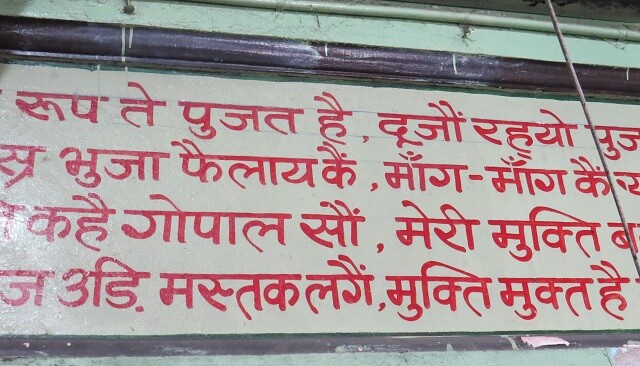 रूप ते पुजत है, दूजौं रह्यो
भुजा फैलायकैं, माँग-माँग कैं
कहै गोपाल सौं, मेरी मुक्ति
उडि़ मस्तक लगैं, मुक्ति मुक्त है